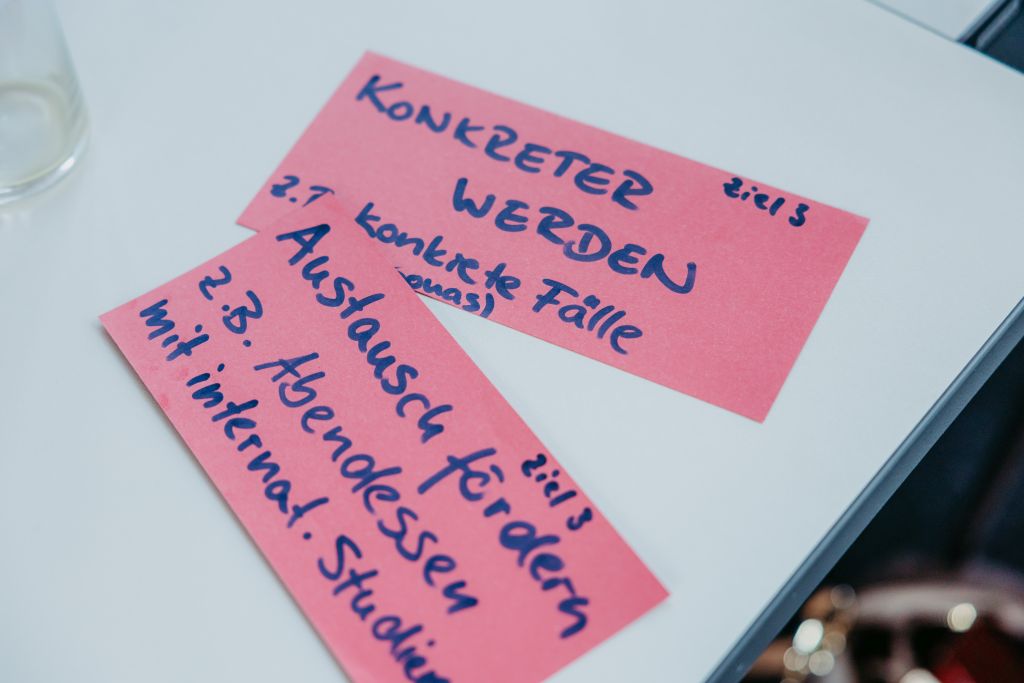 KONKRETER
WERDEN
Ziel 3
konkrete Fälle
Austausch fördern
Ziel 3
z.B. Abendessen
mit internat.